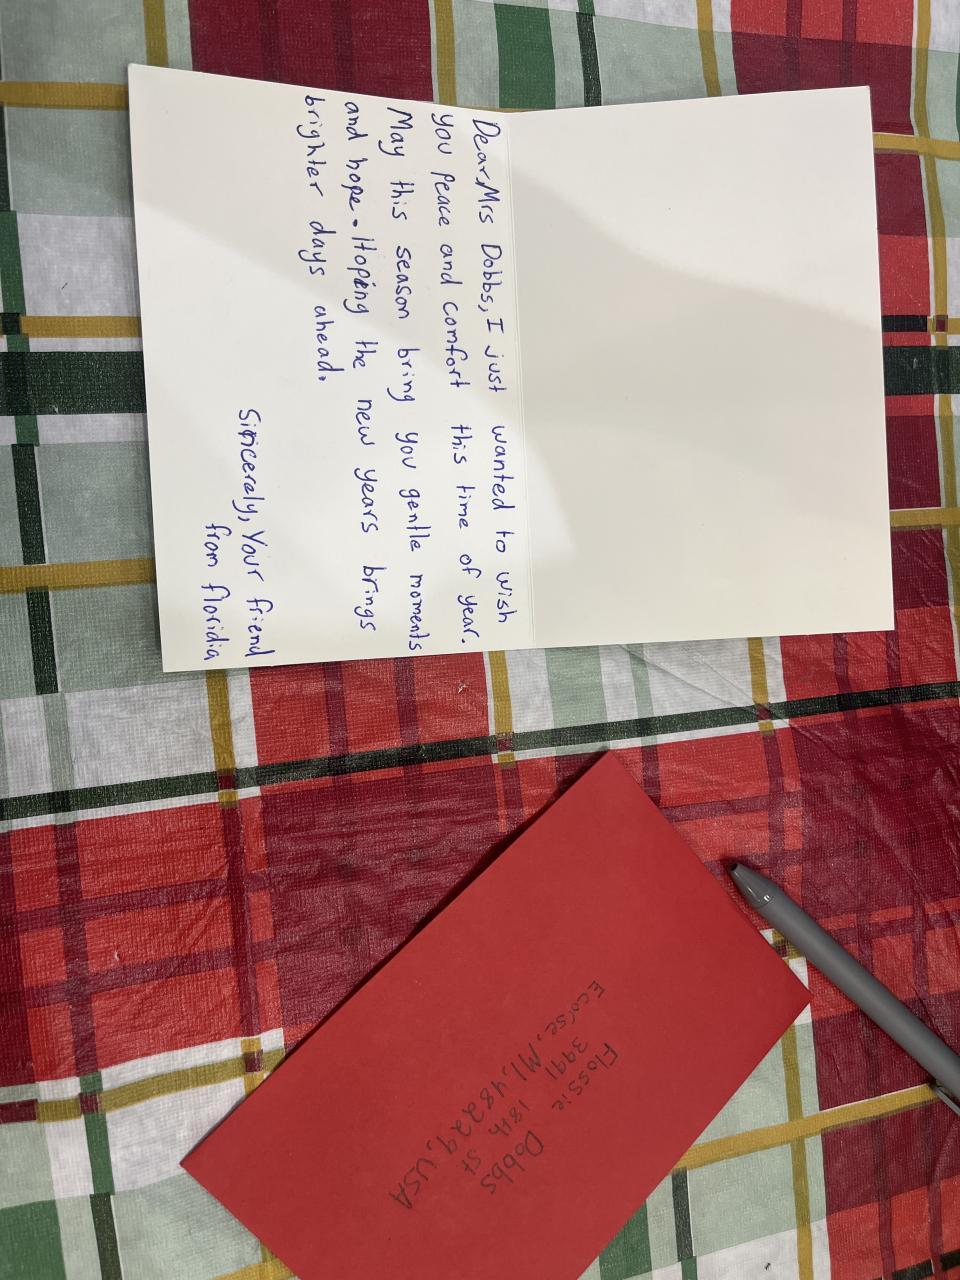 Dear, Mrs Dobbs, I just wanted to wish
you peace and comfort this time of year.
May this season bring you gentle moments
and hope. Hoping the new years brings
brighter days ahead.
Sincerely, Your friend
from floridia
Flossie Dobbs
3991 18th St
Ecorse, MI, 48229, USA